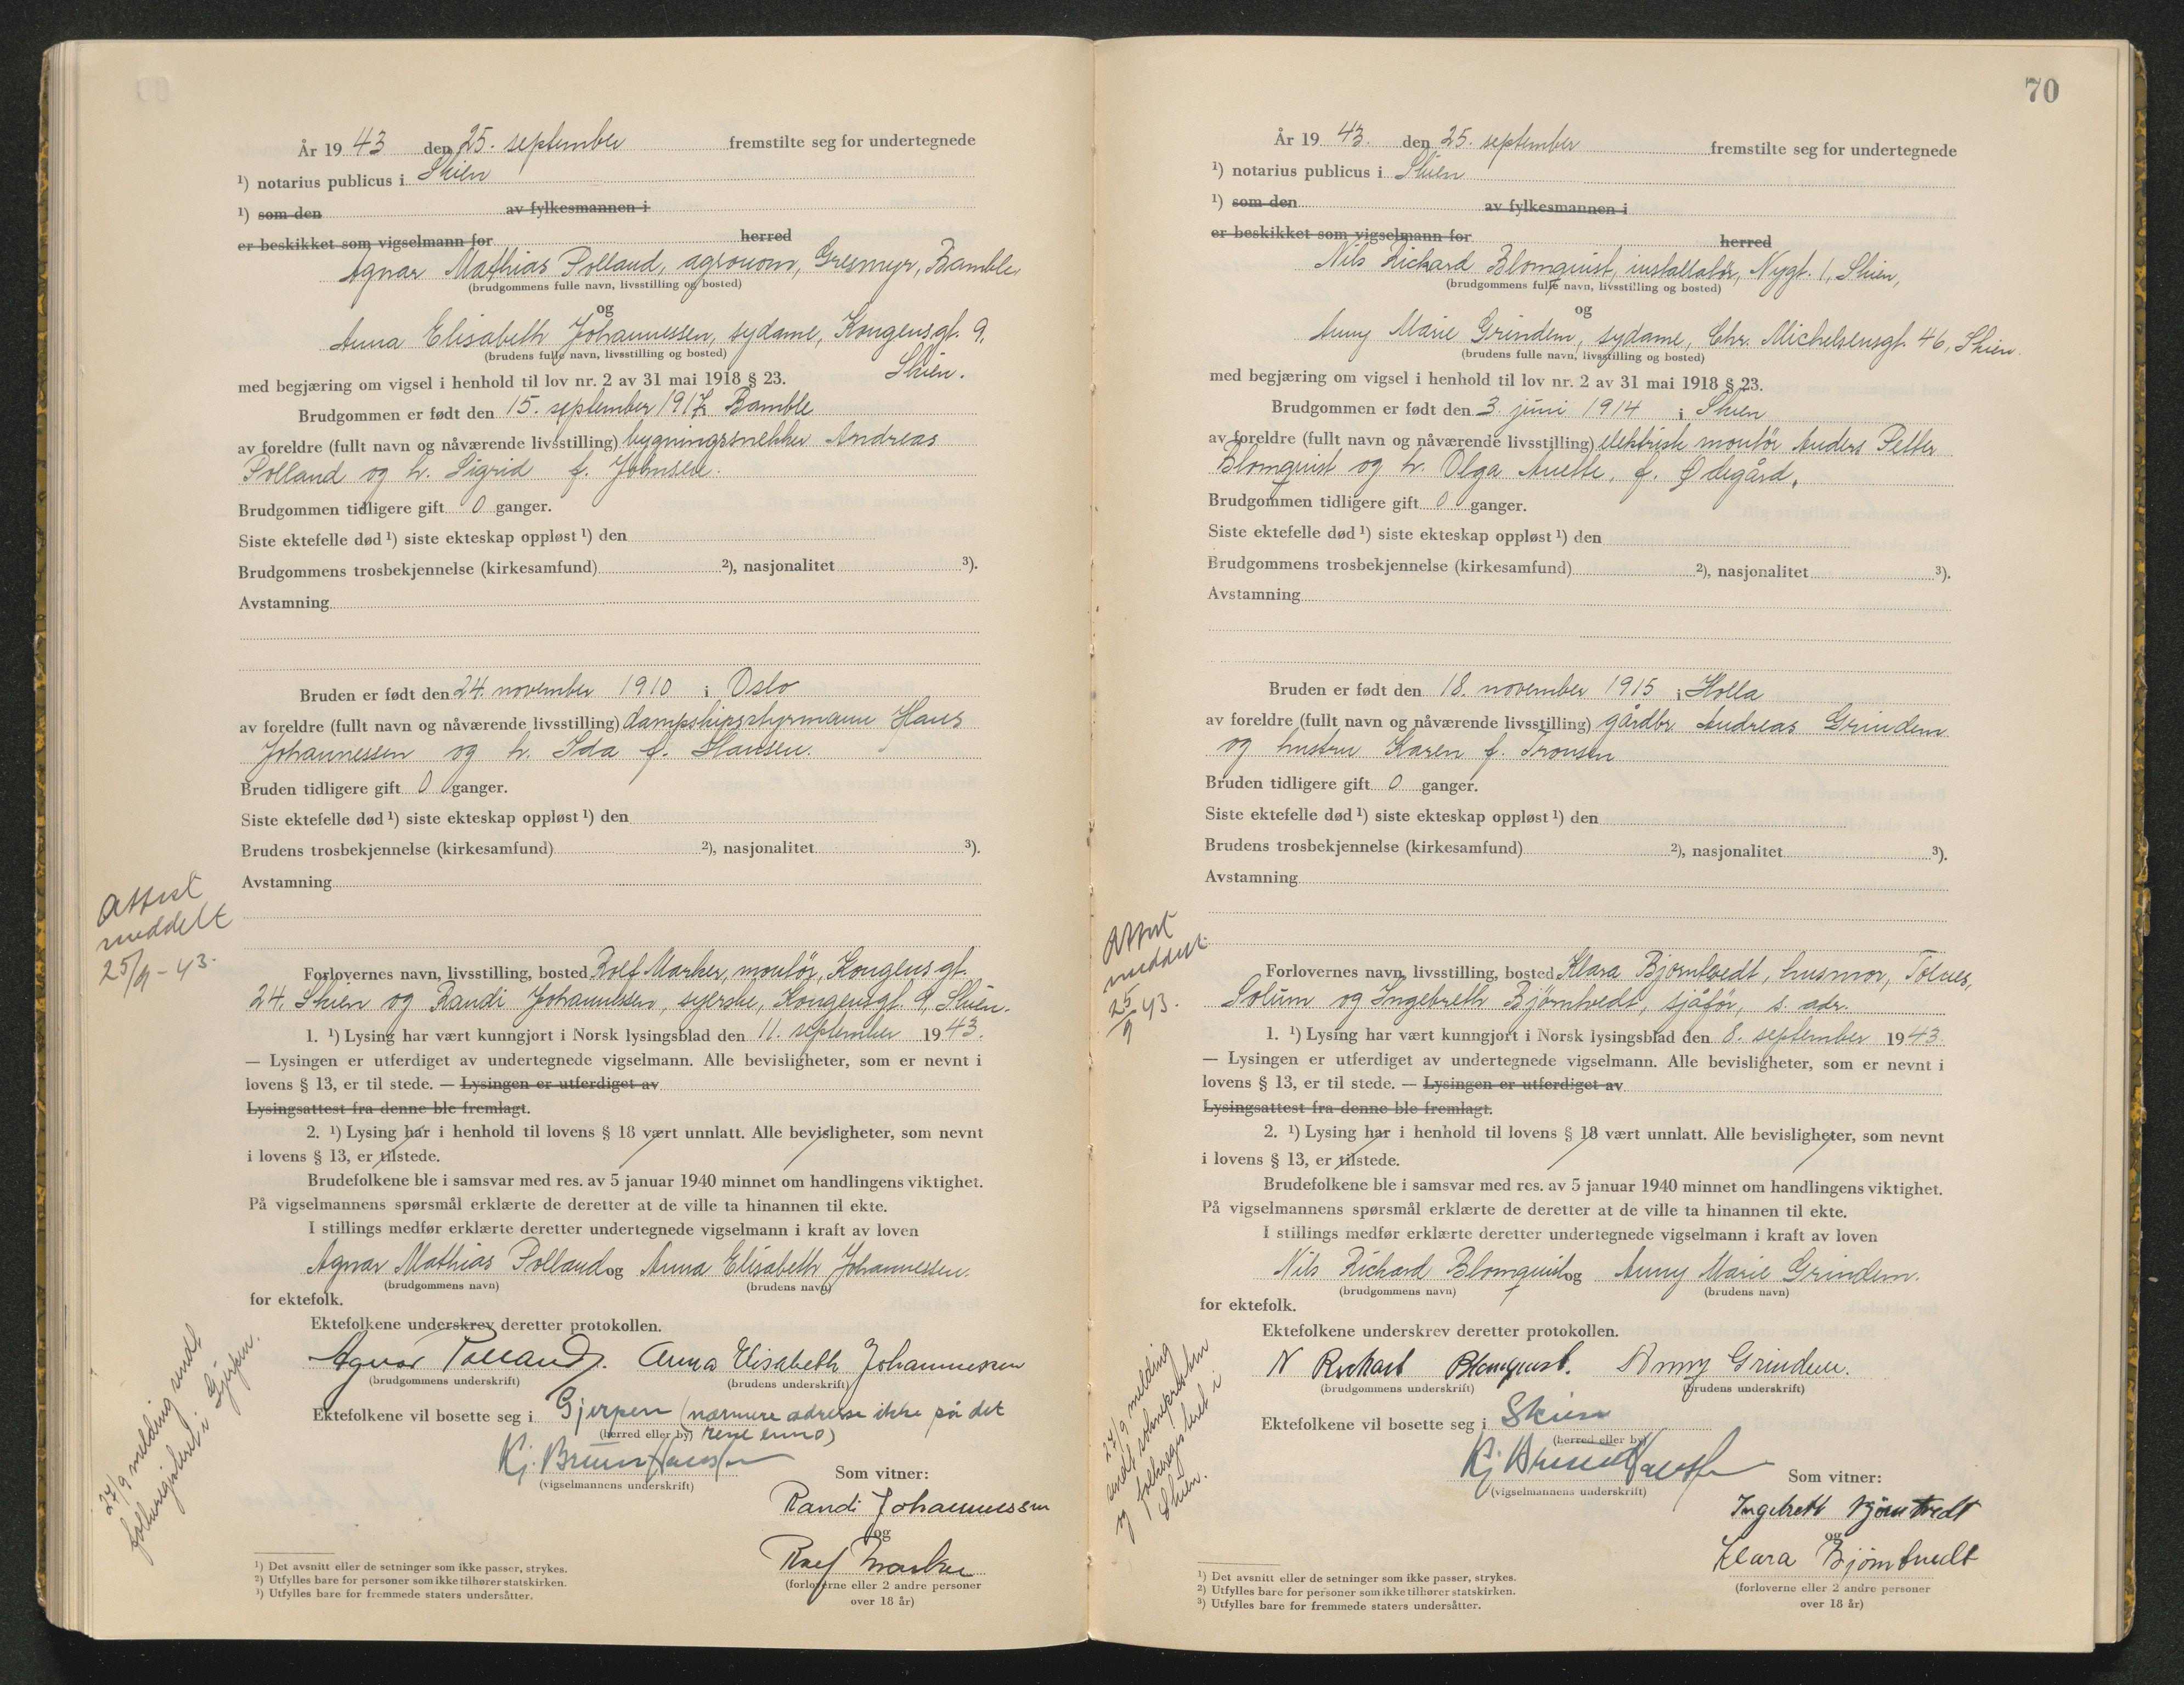 År 19 43 den 25. september fremstilte seg for undertegnede
¹) notarius publicus i Skien
¹) som den av fylkesmannen i
er beskikket som vigselmann for herred
Agnar Mathias Polland, agronom, Gresmyr, Bamble,
(brudgommens fulle navn, livsstilling og bosted)
og
Anna Elisabeth Johannessen, sydame, Kongensgt. 9,
(brudens fulle navn, livsstilling og bosted)
Skien.
med begjæring om vigsel i henhold til lov nr. 2 av 31 mai 1918 § 23.
Brudgommen er født den 15. september 1917 i Bamble
av foreldre (fullt navn og nåværende livsstilling) bygningssnekker Andreas
Polland og h. Sigrid f. Johnsen.
Brudgommen tidligere gift 0 ganger.
Siste ektefelle død ¹) siste ekteskap oppløst ¹) den
Brudgommens trosbekjennelse (kirkesamfund) ²), nasjonalitet ³).
Avstamning
Bruden er født den 24. november 1910 i Oslo
av foreldre (fullt navn og nåværende livsstilling) dampskipsstyrmann Hans
Johannessen og h. Ida f. Hansen.
Bruden tidligere gift 0 ganger.
Siste ektefelle død ¹) siste ekteskap oppløst ¹) den
Brudens trosbekjennelse (kirkesamfund) ²), nasjonalitet ³).
Avstamning
Attest
meddelt
25/9-43.
Forlovernes navn, livsstilling, bosted Rolf Marker, montør, Kongensgt.
24, Skien og Randi Johannessen, syerske, Kongensgt. 9, Skien.
1. ¹) Lysing har vært kunngjort i Norsk lysingsblad den 11. september 1943.
— Lysingen er utferdiget av undertegnede vigselmann. Alle bevisligheter, som er nevnt i
lovens § 13, er til stede. — Lysingen er utferdiget av
Lysingsattest fra denne ble fremlagt.
2. ¹) Lysing har i henhold til lovens § 18 vært unnlatt. Alle bevisligheter, som nevnt
i lovens § 13, er tilstede.
Brudefolkene ble i samsvar med res. av 5 januar 1940 minnet om handlingens viktighet.
På vigselmannens spørsmål erklærte de deretter at de ville ta hinannen til ekte.
I stillings medfør erklærte deretter undertegnede vigselmann i kraft av loven
Agnar Mathias Polland og Anna Elisabeth Johannessen.
(brudgommens navn) (brudens navn)
for ektefolk.
Ektefolkene underskrev deretter protokollen.
Agnar Polland. Anna Elisabeth Johannessen
(brudgommens underskrift) (brudens underskrift)
Ektefolkene vil bosette seg i Gjerpen (nærmere adresse ikke på det
(herred eller by) rene ennå)
Kj. Bruun Hansen
(vigselmannens underskrift)
Som vitner:
Randi Johannessen
og
Rolf Marker
(forloverne eller 2 andre personer
over 18 år)
27/9 melding sendt
folkeregisteret i Gjerpen.
¹) Det avsnitt eller de setninger som ikke passer, strykes.
²) Utfylles bare for personer som ikke tilhører statskirken.
³) Utfylles bare for fremmede staters undersåtter.
70
År 19 43. den 25. september fremstilte seg for undertegnede
¹) notarius publicus i Skien
¹) som den av fylkesmannen i
er beskikket som vigselmann for herred
Nils Rickard Blomquist, installatør, Nygt. 1, Skien,
(brudgommens fulle navn, livsstilling og bosted)
og
Anny Marie Grindem, sydame, Chr. Michelsensgt. 46, Skien.
(brudens fulle navn, livsstilling og bosted)
med begjæring om vigsel i henhold til lov nr. 2 av 31 mai 1918 § 23.
Brudgommen er født den 3. juni 1914 i Skien
av foreldre (fullt navn og nåværende livsstilling) elektrisk montør Anders Petter
Blomquist og h. Olga Anette, f. Ødegård.
Brudgommen tidligere gift 0 ganger.
Siste ektefelle død ¹) siste ekteskap oppløst ¹) den
Brudgommens trosbekjennelse (kirkesamfund) ²), nasjonalitet ³).
Avstamning
Bruden er født den 18. november 1915 i Holla
av foreldre (fullt navn og nåværende livsstilling) gårdbr. Andreas Grindem
og hustru Karen f. Tronsen
Bruden tidligere gift 0 ganger.
Siste ektefelle død ¹) siste ekteskap oppløst ¹) den
Brudens trosbekjennelse (kirkesamfund) ²), nasjonalitet ³).
Avstamning
Attest
meddelt
25/9 43.
Forlovernes navn, livsstilling, bosted Klara Bjørntvedt, husmor, Tolnes,
Solum og Ingebreth Bjørntvedt, sjåfør, s. adr.
1. ¹) Lysing har vært kunngjort i Norsk lysingsblad den 8. september 1943.
— Lysingen er utferdiget av undertegnede vigselmann. Alle bevisligheter, som er nevnt i
lovens § 13, er til stede. — Lysingen er utferdiget av
Lysingsattest fra denne ble fremlagt.
2. ¹) Lysing har i henhold til lovens § 18 vært unnlatt. Alle bevisligheter, som nevnt
i lovens § 13, er tilstede.
Brudefolkene ble i samsvar med res. av 5 januar 1940 minnet om handlingens viktighet.
På vigselmannens spørsmål erklærte de deretter at de ville ta hinannen til ekte.
I stillings medfør erklærte deretter undertegnede vigselmann i kraft av loven
Nils Rickard Blomquist og Anny Marie Grindem.
(brudgommens navn) (brudens navn)
for ektefolk.
Ektefolkene underskrev deretter protokollen.
N Rickart Blomquist. Anny Grindem.
(brudgommens underskrift) (brudens underskrift)
Ektefolkene vil bosette seg i Skien
(herred eller by)
Kj Bruun Hansen
(vigselmannens underskrift)
Som vitner:
Ingebrett Bjørntvedt
og
Klara Bjørntvedt
(forloverne eller 2 andre personer
over 18 år)
27/9 melding
sendt soknepresten
og folkeregisteret i
Skien.
¹) Det avsnitt eller de setninger som ikke passer, strykes.
²) Utfylles bare for personer som ikke tilhører statskirken.
³) Utfylles bare for fremmede staters undersåtter.